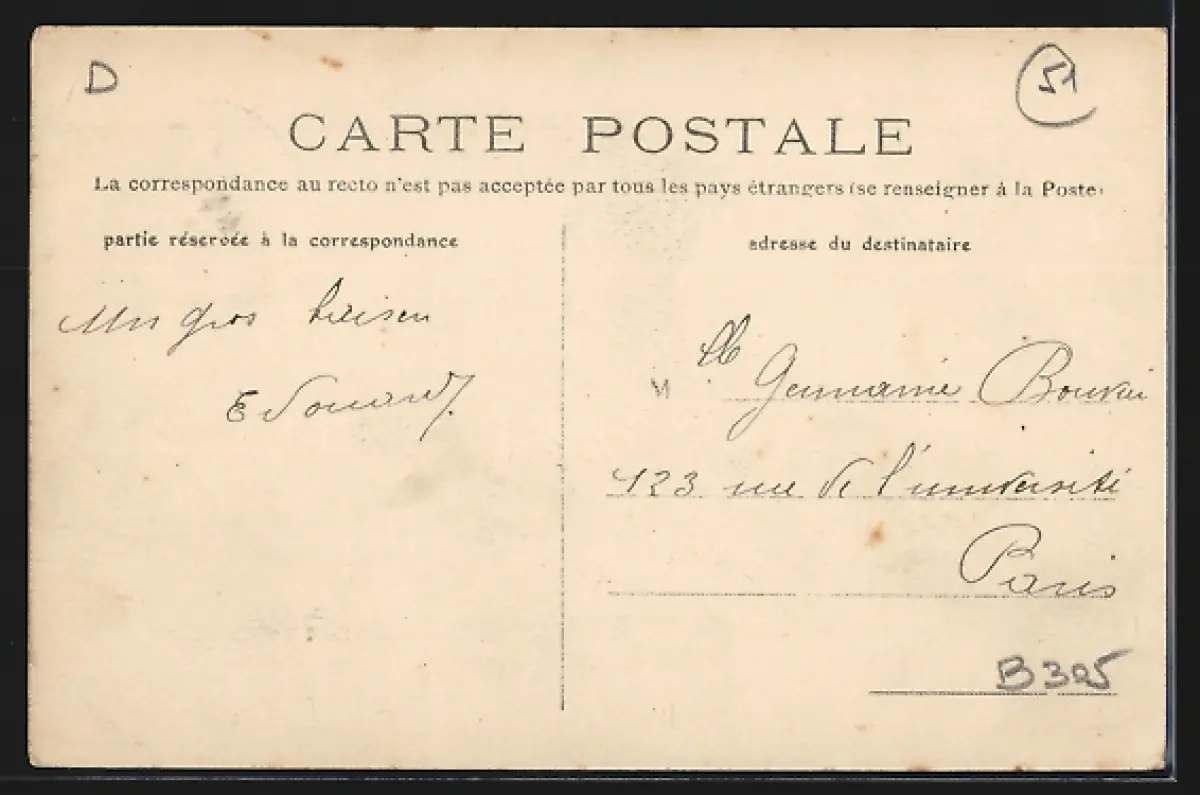 D
51
CARTE POSTALE
La correspondance au recto n'est pas acceptée par tous les pays étrangers (se renseigner à la Poste)
partie réservée à la correspondance
Un gros
Edouard
adresse du destinataire
Germaine
123 rue de l'université
Paris
B 325